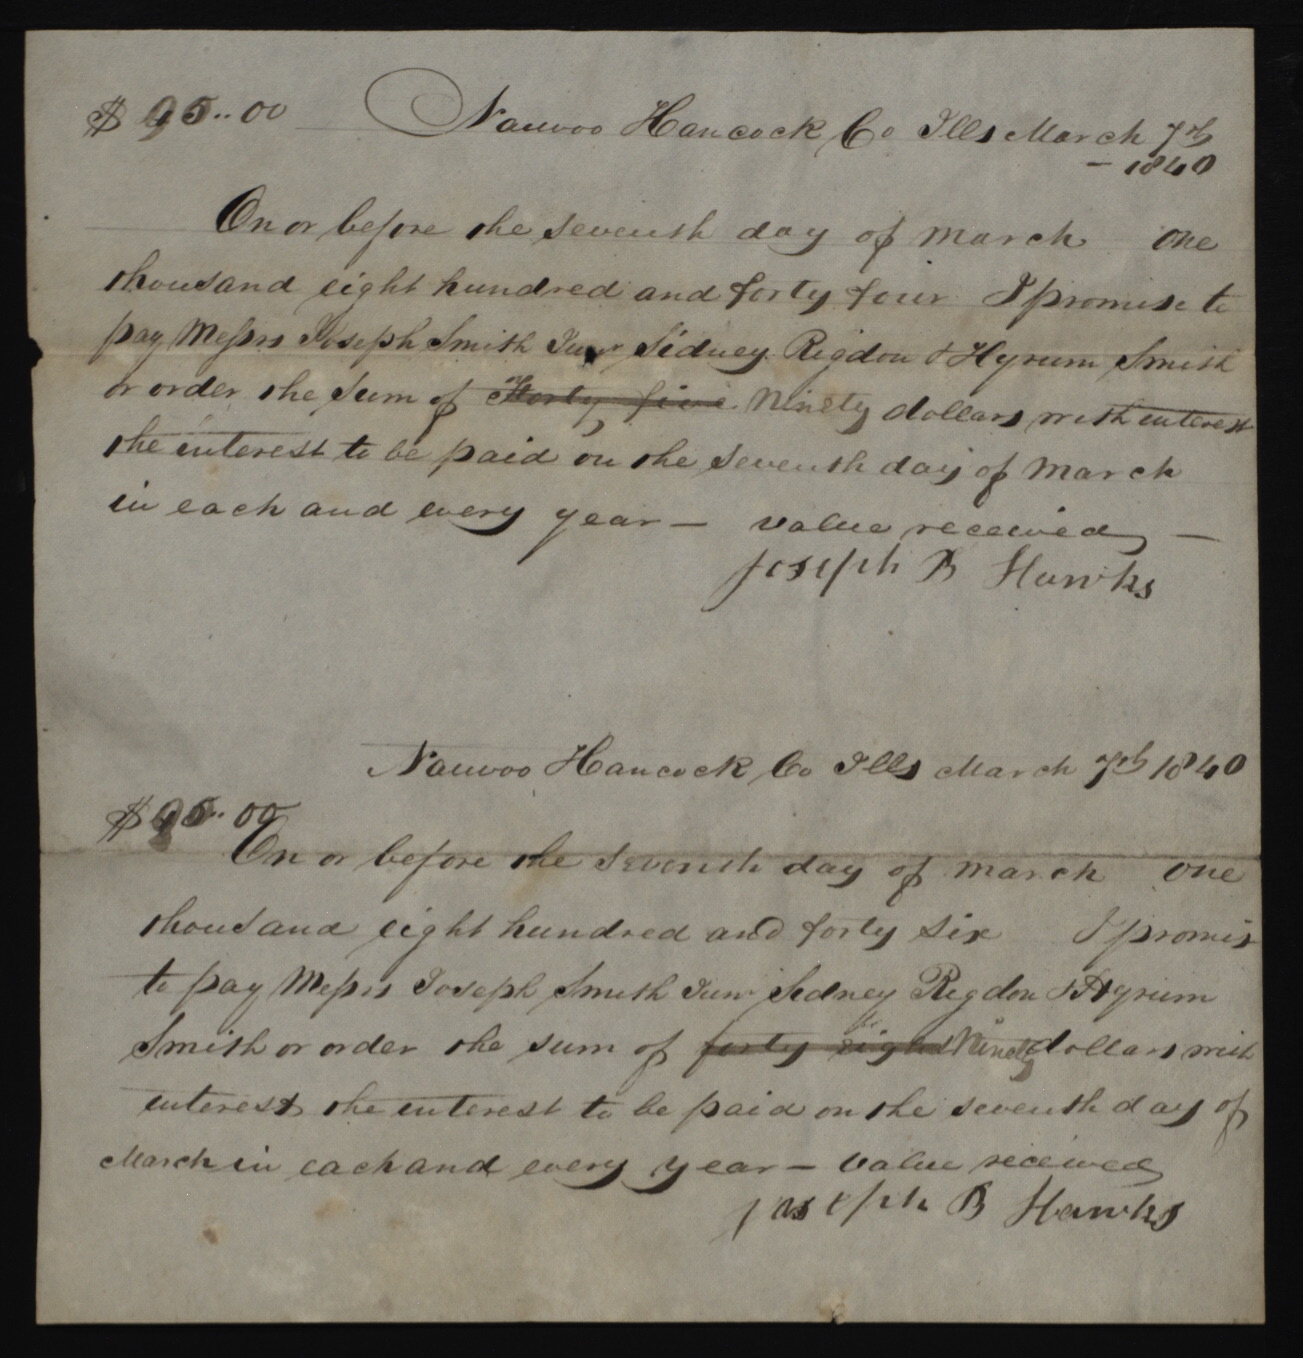 $ 95..00 Nauvoo Hancock Co Ills March 7th
– 1840
On or before the seventh day of march one
thousand eight hundred and forty four I promise to
pay Messrs Joseph Smith Junr Sidney Rigdon & Hyrum Smith
or order the sum of Forty five Ninety dollars with interest
the interest to be paid on the seventh day of March
in each and every year — value received —
Joseph B Hawks
Nauvoo Hancock Co Ills March 7th 1840
$ 00
On or before the seventh day of march one
thousand eight hundred and forty six I promis
to pay Messrs Joseph Smith Junr Sidney Rigdon & Hyrum
Smith or order the sum of forty eight Ninety dollars with
interest the interest to be paid on the seventh day of
March in each and every year — value received
Joseph B Hawks